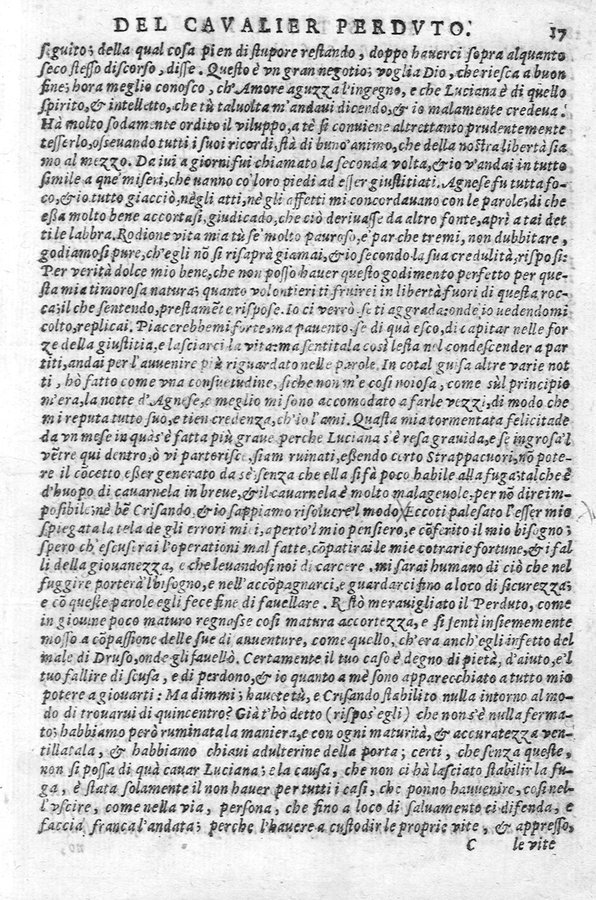 DEL CAVALIER PERDVTO. 17
seguito; della qual cosa pien di stupore restando, doppo haverci sopra alquanto
seco stesso discorso, disse. Questo è vn gran negotio; voglia Dio, che riesca a buon
fine; hora meglio conosco, ch'Amore aguzza l'ingegno, e che Luciana è di quello
spirito, & intelletto, che tù talvolta m'andavi dicendo, & io malamente credeva.
Hà molto sodamente ordito il viluppo, a tè si conviene altrettanto prudentemente
tesserlo, ossevando tutti i suoi ricordi, stà di buno animo, che della nostra libertà sia
mo al mezzo. Da ivi a giorni fui chiamato la seconda volta, & io v'andai in tutto
simile a que' miseri, che vanno co' loro piedi ad esser giustitiati. Agnese fu tutta fo-
co, & io tutto giaccio, nè gli atti, nè gli affetti mi concordavano con le parole; di che
essa molto bene accortasi, giudicado, che ciò derivasse da altro fonte, aprì a tai det
ti le labbra. Rodione vita mia tù se' molto pauroso, e par che tremi, non dubbitare,
godiamosi pure, ch'egli nõ si risaprà giamai, & io secondo la sua credulità, risposi:
Per verità dolce mio bene, che non posso haver questo godimento perfetto per que-
sta mia timorosa natura; quanto volontieri ti fruirei in libertà fuori di questa roc-
ca; il che sentendo, prestamẽte rispose. Io ci verrò se ti aggrada: onde io vedendomi
colto, replicai. Piacerebbemi forte, ma pavento, se di quà esco, di capitar nelle for
ze della giustitia, e lasciarci la vita: ma sentitala così lesta nel condescender a par
titi, andai per l'avvenire più riguardato nelle parole. In cotal guisa altre varie not
ti, hò fatto come vna consuetudine, siche non m'è cosi noiosa, come sùl principio
m'era, la notte d'Agnese, e meglio mi sono accomodato a farle vezzi, di modo che
mi reputa tutto suo, e tien credenza, ch'io l'ami. Questa mia tormentata felicitade
da vn mese in quàs'è fatta più grave perche Luciana s'è resa gravida, e se ingrosa'l
vẽtre qui dentro, ò vi partorisce, siam ruinati, essendo certo Strappacuori, nõ pote-
re il cõcetto esser generato da sè; senza che ella si fà poco habile alla fuga: talche è
d'huopo di cavarnela in breve, & il cavarnela è molto malagevole, per nõ dire im-
possibile; nè bẽ Crisando, & io sappiamo risolvere'l modo. Eccoti palesato l'esser mio
spiegata la tela de gli errori miei, aperto'l mio pensiero, e cõferito il mio bisogno;
spero ch'escuserai l'operationi mal fatte, cõpatirai le mie cõtrarie fortune, & i fal
li della giovanezza, e che levandosi noi di carcere. mi sarai humano di ciò che nel
fuggire porterà'l bisogno, e nell'accõpagnarci, e guardarci fino a loco di sicurezza;
e cõ queste parole egli fece fine di favellare. Restò meravigliato il Perduto, come
in giovine poco maturo regnasse così matura accortezza, e si sentì insiememente
mosso a cõpassione delle sue di avventure, come quello, ch'era anch'egli infetto del
male di Druso, onde gli favellò. Certamente il tuo caso è degno di pietà, d'aiuto, e'l
tuo fallire di scusa, e di perdono, & io quanto a mè sono apparecchiato a tutto mio
potere a giovarti: Ma dimmi; havete tù, e Crisando stabilito nulla intorno al mo-
do di trovarvi di quincentro? Già t'hò detto (rispos'egli) che non s'è nulla ferma-
to; habbiamo però ruminata la maniera, e con ogni maturità, & accuratezza ven-
tillatala, & habbiamo chiavi adulterine della porta; certi, che senza queste,
non si possa di quà cavar Luciana; e la causa, che non ci hà lasciato stabilir la fu-
ga, è stata solamente il non haver per tutti i casi, che ponno havvenire, cosi nel-
l'vscire, come nella via, persona, che fino a loco di salvamento ci difenda, e
faccia franca l'andata; perche l'havere a custodir le proprie vite, & appresso,
C le vite